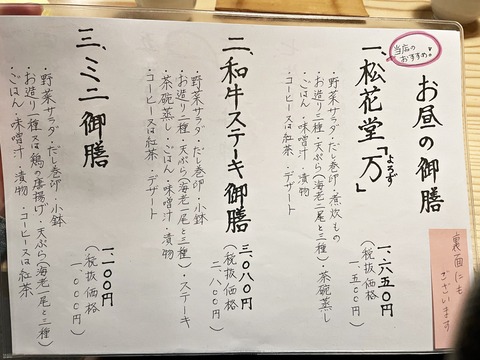 お昼の御膳
当店の
おすすめ!
一、松花堂「万」
よろず
一、六五〇円
(税抜価格
一、五〇〇円)
・野菜サラダ・だし巻卵・煮炊もの
・お造り三種・天ぷら(海老二尾と三種)・茶碗蒸し
・ごはん・味噌汁・漬物
・コーヒー又は紅茶・デザート
二、和牛ステーキ御膳
三、〇八〇円
(税抜価格
二、八〇〇円)
・野菜サラダ・だし巻卵・小鉢
・お造り二種・天ぷら(海老一尾と三種)・ステーキ
・茶碗蒸し・ごはん・味噌汁・漬物
・コーヒー又は紅茶・デザート
三、ミニ御膳
一、一〇〇円
(税抜価格
一、〇〇〇円)
・野菜サラダ・だし巻卵・小鉢
・お造り一種又は鶏の唐揚げ・天ぷら(海老一尾と三種)
・ごはん・味噌汁・漬物・コーヒー又は紅茶
裏面にも
ございます